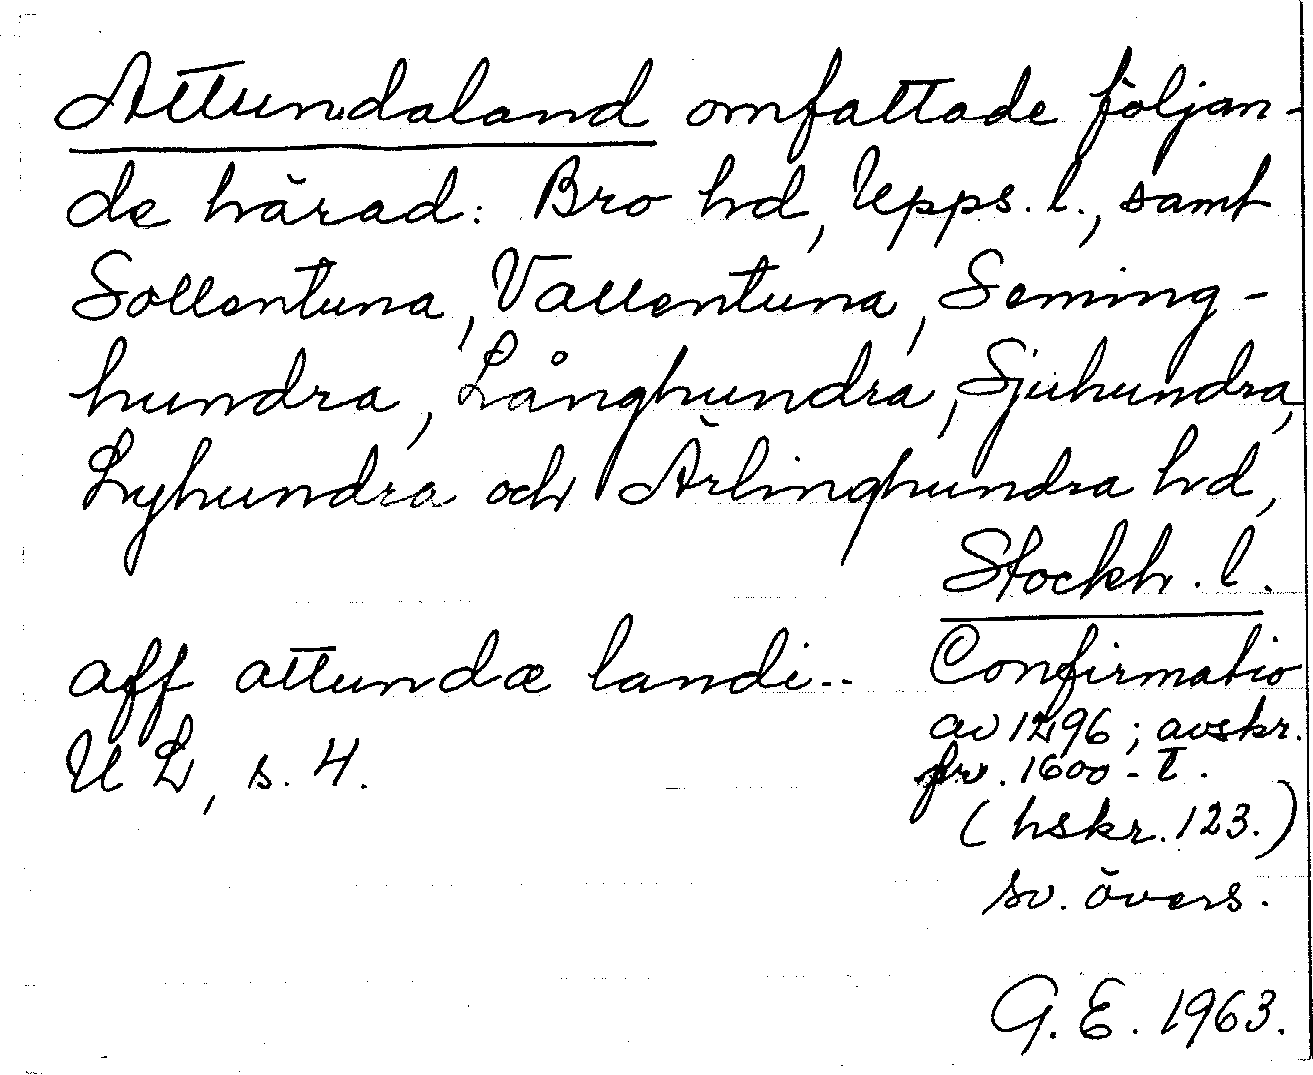 Attundaland omfattade följan-
de härad: Bro hd, Upps. l., samt
Sollentuna, Vallentuna, Seming-
hundra, Långhundra, Sjuhundra,
Lyhundra och Ärlinghundra hd,
Stockh. l.
aff attundæ landi..
UL, s. 4.
Confirmatio
av 1296; avskr.
fr. 1600-t.
(hskr. 123.)
sv. övers.
G. E. 1963.